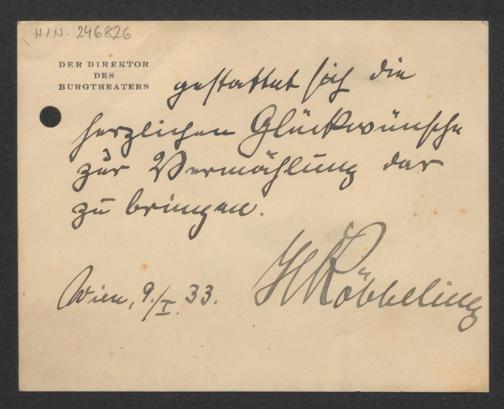 H.I.N. 246826
DER DIREKTOR
DES
BURGTHEATERS
gestattet sich die
herzlichen Glückwünsche
zur Vermählung dar
zu bringen.
Wien, 9./I. 33.
H Röbbeling